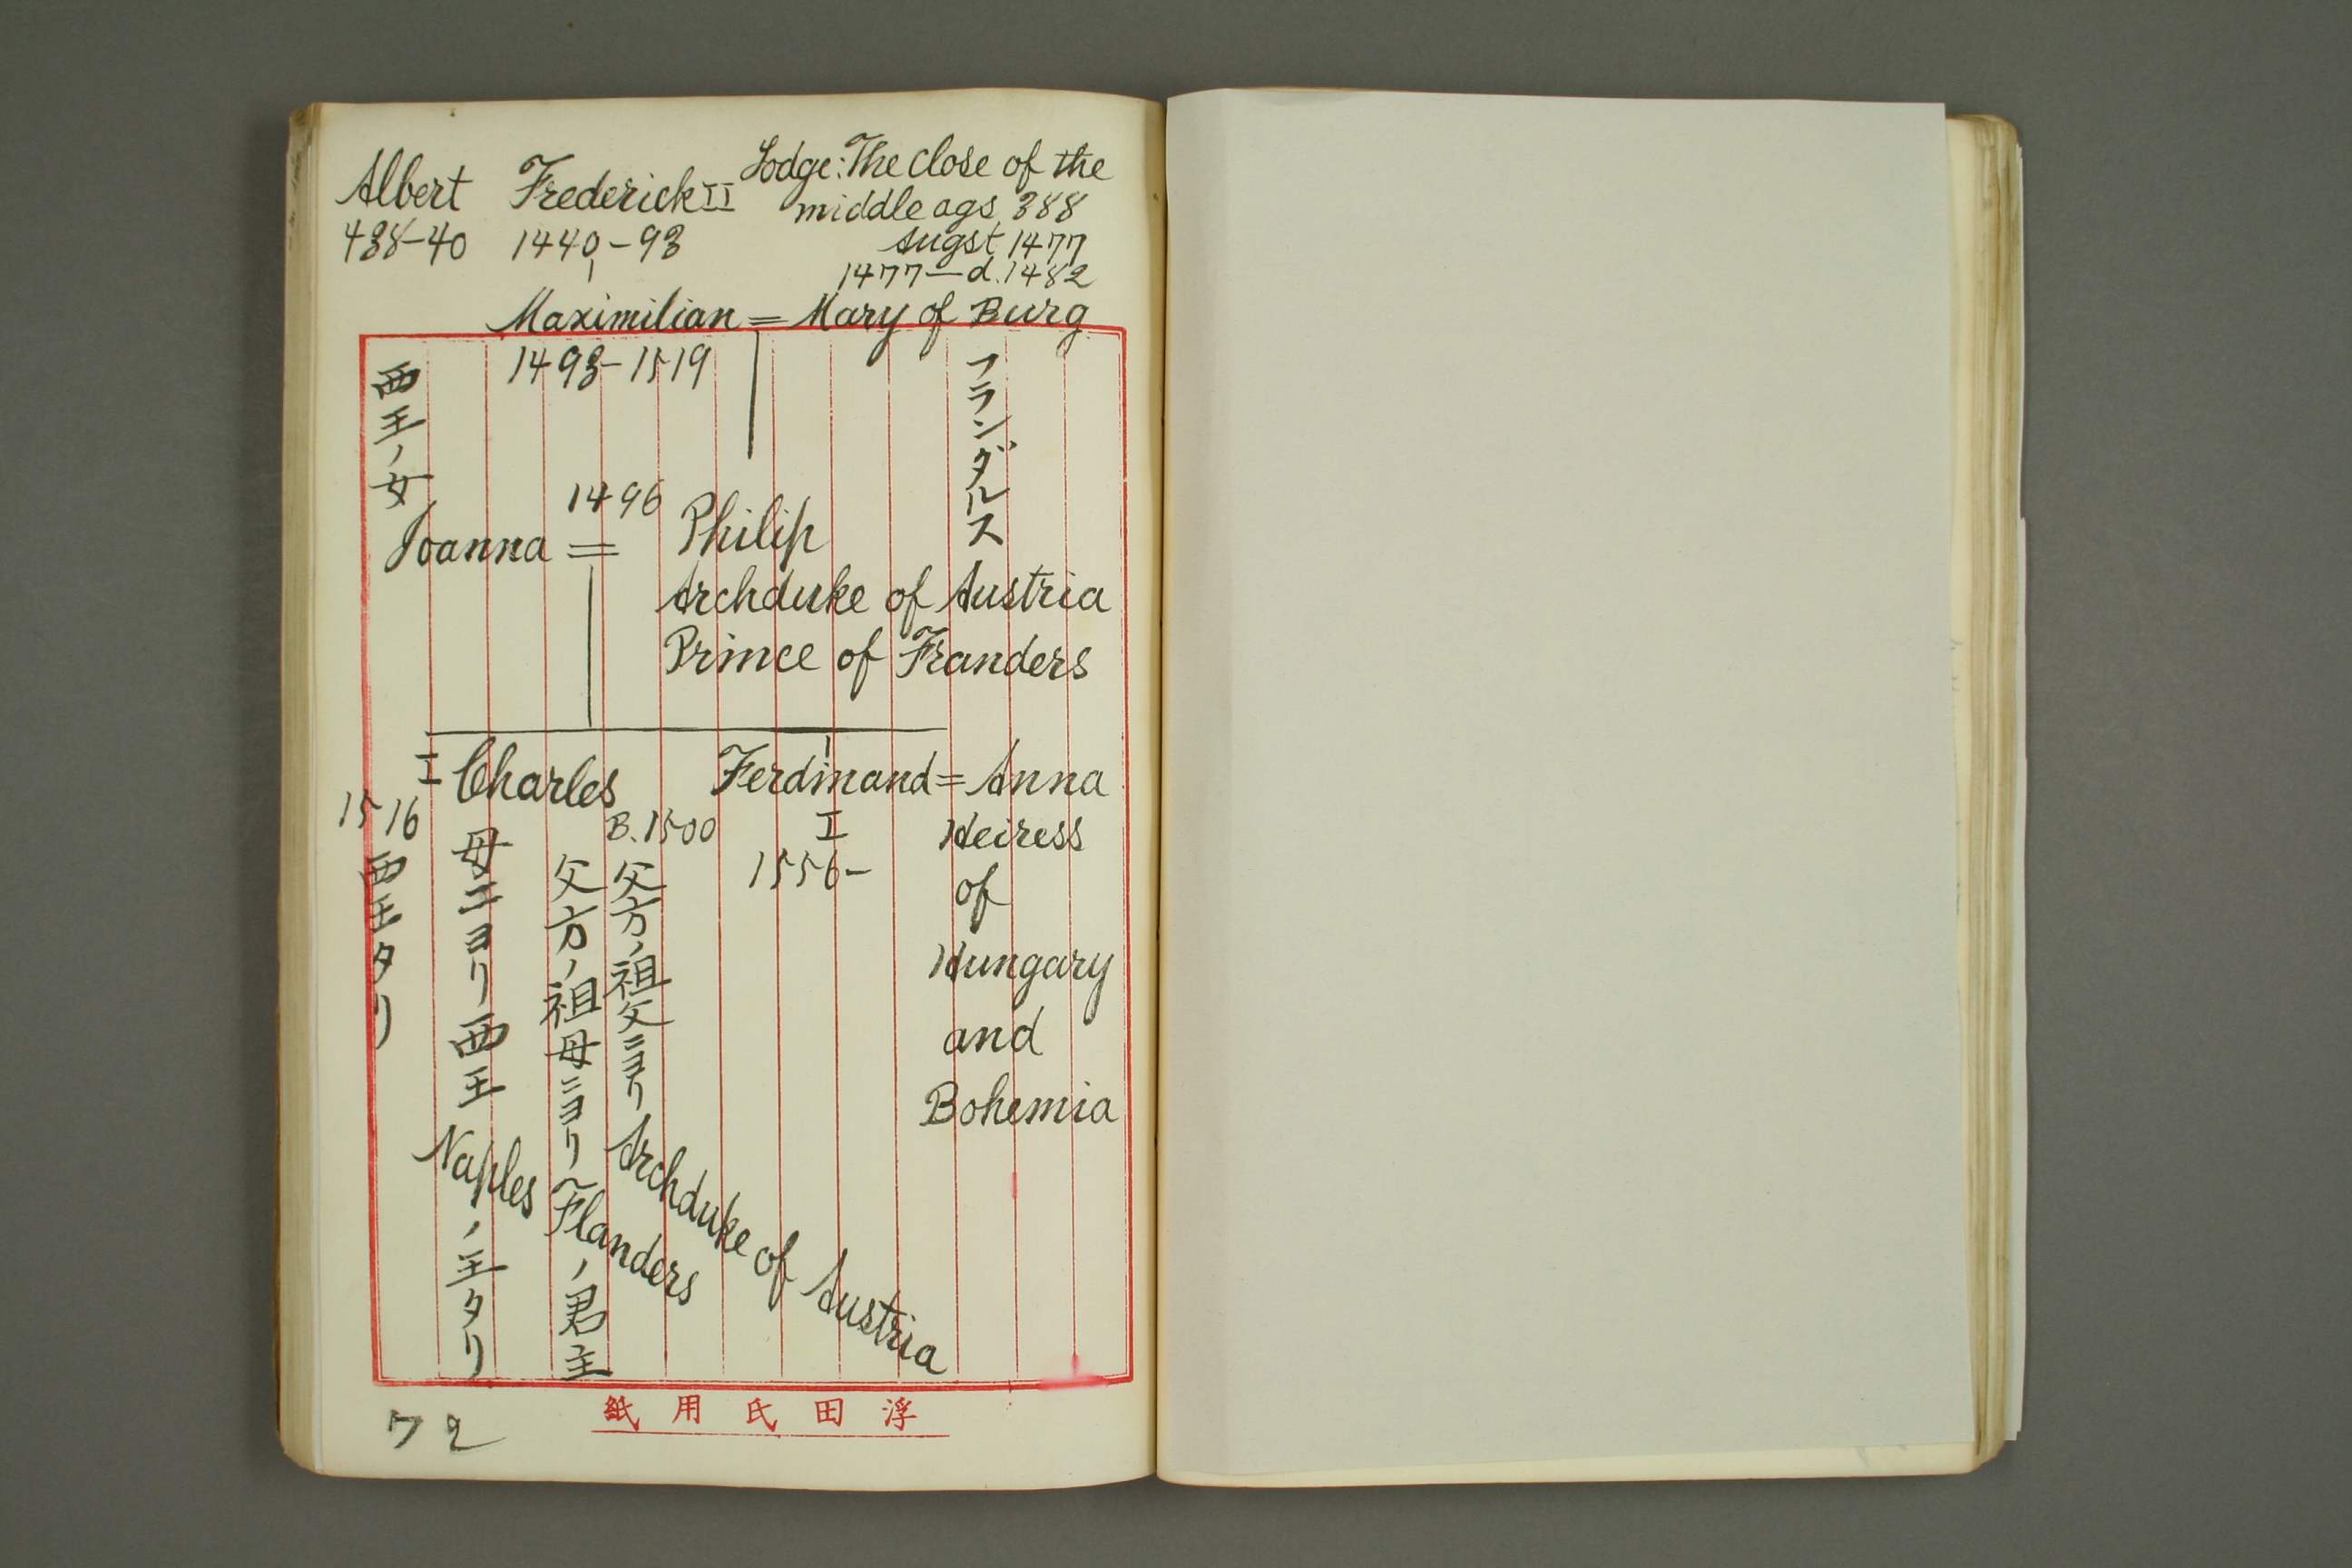 Albert Frederick II Lodge: The close of the
middle ags 388
438-40 1440-93 Augst 1477
1477—d. 1482
Maximilian = Mary of Burg
1493-1519
フランダルス
西王ノ女
1496
Joanna = Philip
Archduke of Austria
Prince of Franders
I Charles Ferdinand = Anna
B. 1500 I Heiress
1556- of
Hungary
and
Bohemia
父方ノ祖父ニヨリ Archduke of Austria
父方ノ祖母ニヨリ Flanders ノ君主
母ニヨリ西王 Naples ノ王タリ
1516 西王タリ
紙用氏田浮
72